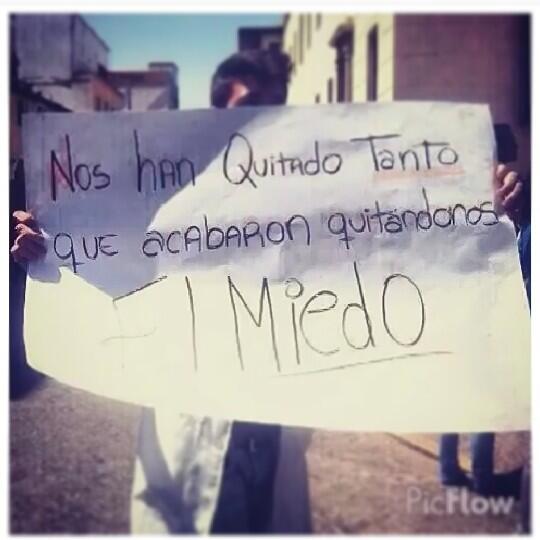 Nos han Quitado Tanto
que acabaron quitándonos
El Miedo
PicFlow